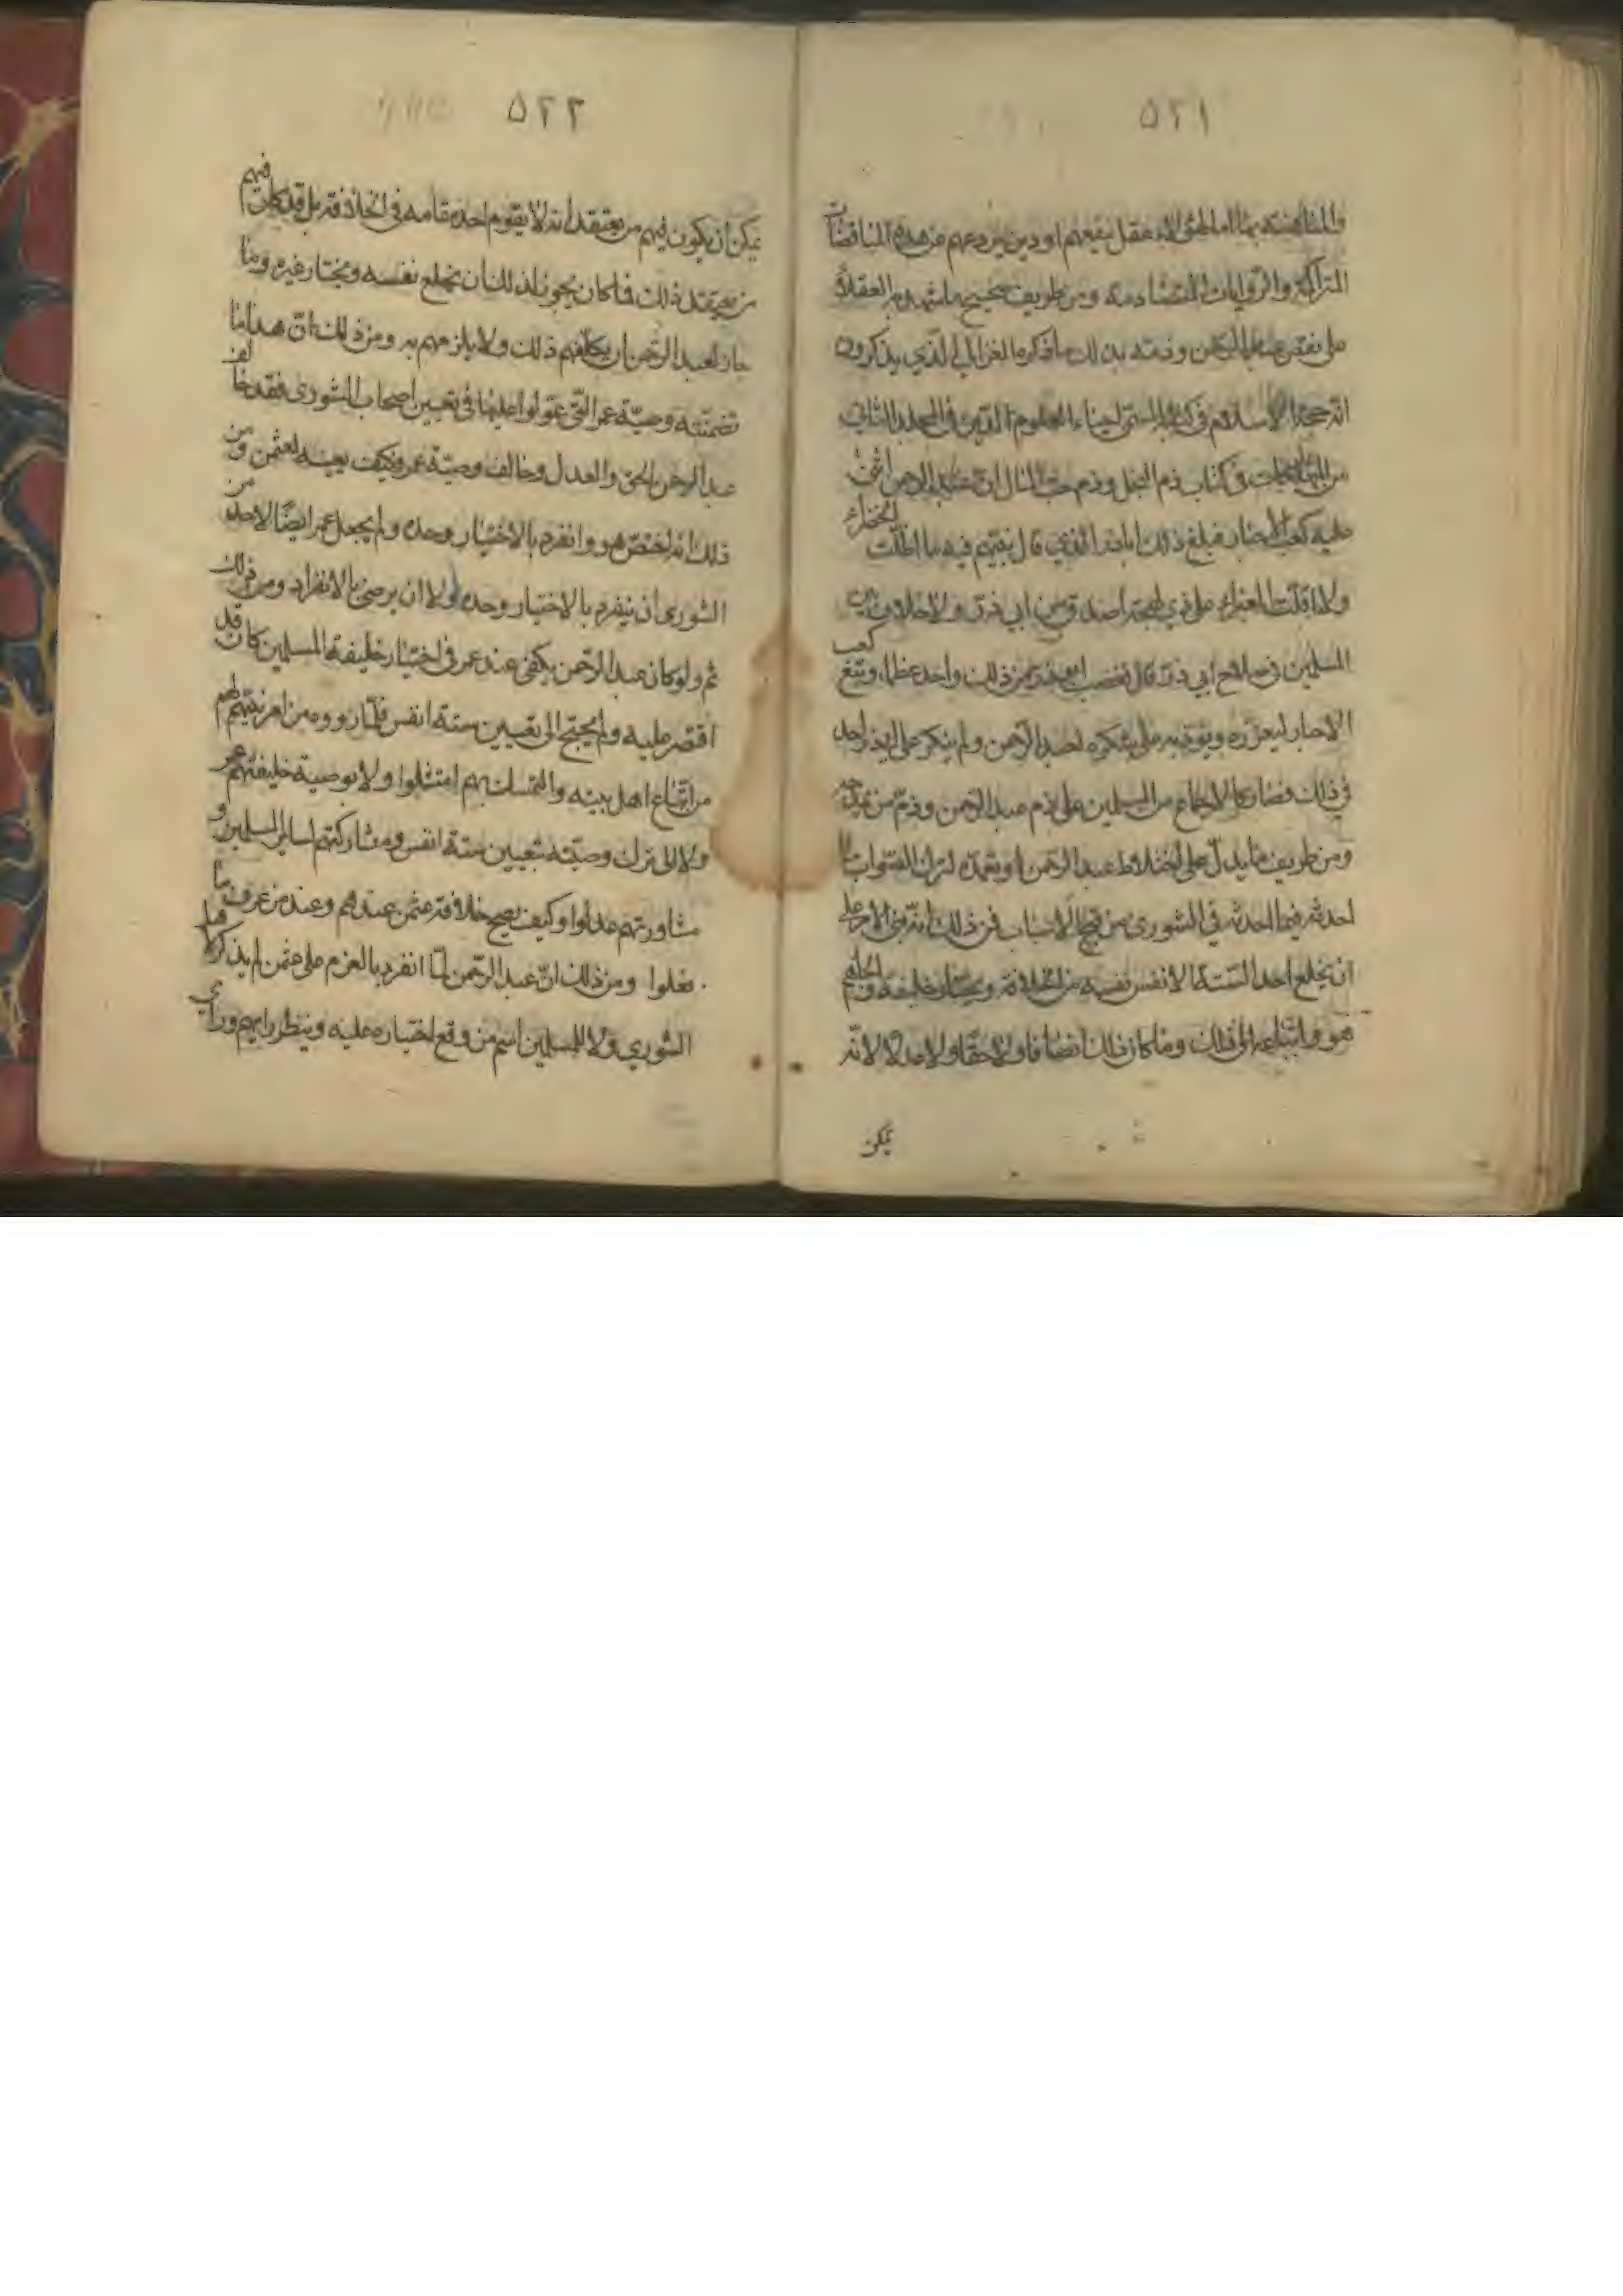 ٥٢١
والمناقضة بها اما لهؤلاء عقل ينفعهم او دين يردعهم عن هذه المناقضات
المتراكمة والروايات المتضادمة ومن طريف صحيح ما شهدوا العقلاء
على نقص عبد الرحمن وذمته بذلك ما ذكره الغزالي الذي يذكرون
انه حجة الاسلام في كتابه المسمى احياء العلوم الدين في المجلد الثالث
من المهلكات في كتاب ذم البخل وذم حب المال ان عبد الرحمن اثنى
عليه كعب الاحبار فبلغ ذلك اباذر الذي قال نبيهم فيه ما اظلت الخضراء
ولا اقلت الغبراء على ذي لهجة اصدق من ابي ذر ولا خلاف بين
المسلمين في صلاح ابي ذر قال فغضب ابوذر من ذلك واخذ عظما وتبع كعب
الاحبار ليعزره ويؤدبه على شكره لعبد الرحمن ولم ينكر على ابي ذر احد
في ذلك فصار كالاجماع من المسلمين على ذم عبد الرحمن وذم من مدحه
ومن طريف ما يدل على اختلاط عبد الرحمن او تعمده لترك الصواب
احدثه فيما احدثه في الشورى من قبيح الاسباب فمن ذلك انه بنى الامر على
ان يخلع احد الستة الانفس نفسه من الخلافة ويختار خليفة
هو واتباعه الى ذلك وما كان ذلك انصافا ولا حقا ولا عدلا لانه
يمكن
٥٢٢
يمكن ان يكون فيهم من يعتقد انه لا يقوم احد مقامه في الخلافة بل قد كان فيهم
من يعتقد ذلك فما كان يجوز لذلك ان يخلع نفسه ويختار غيره وما
جاز لعبد الرحمن ان يكلفهم ذلك ولا يلزمهم به ومن ذلك ان هذا ما
تضمنته وصية عمر التي عولوا عليها في تعيين اصحاب الشورى فقد خالف
عبد الرحمن الحق والعدل وخالف وصية عمر وكيف بيعته لعثمن ومن
ذلك انه اختص هو وانفرد بالاختيار وحده ولم يجعل عمر ايضا لاحد من
الشورى ان ينفرد بالاختيار وحده ولا ان يرضى بالانفراد ومن ذلك
ثم ولو كان عبد الرحمن يكفي عند عمر في اختيار خليفة المسلمين كان قد
اقتصر عليه ولم يحتج الى تعيين ستة انفس فلما رووه من امر نبيهم لهم
من اتباع اهل بيته والتمسك بهم امتثلوا ولا بوصية خليفتهم عمر
ولا الى ترك وصيته بتعيين ستة انفس ومشاركتهم لسائر المسلمين و
مشاورتهم عدلوا وكيف يصح خلافة عثمن عندهم وعند من عرف ما
فعلوا ومن ذلك ان عبد الرحمن لما انفرد بالعزم على عثمن لم يذكر لاهل
الشورى ولا للمسلمين اسم من وقع اختياره عليه وينظر رايهم وراى